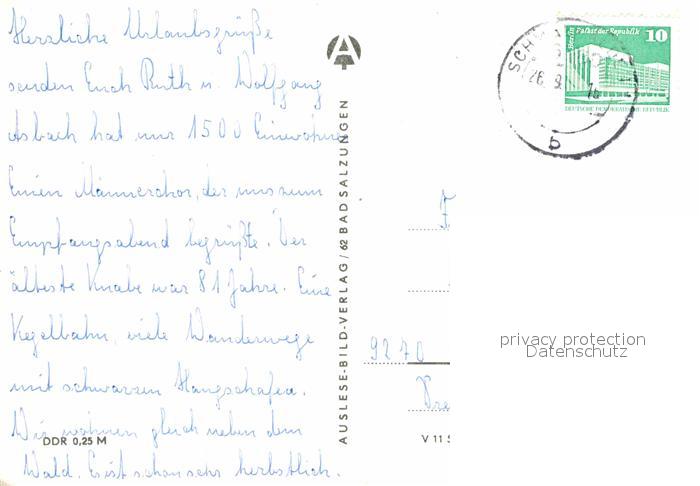 Herzliche Urlaubsgrüße
senden Euch Ruth u. Wolfgang
Asbach hat nur 1500 Einwohner
Einen Männerchor, der uns zum
Empfangsabend begrüßte. Der
älteste Knabe war 81 Jahre. Eine
Kegelbahn, viele Wanderwege
mit schwarzen Hangschafen.
Wir wohnen gleich neben dem
Wald. Es ist schon sehr herbstlich.
DDR 0,25 M
AUSLESE-BILD-VERLAG / 62 BAD SALZUNGEN
V 11 5
Berlin Palast der Republik 10
DEUTSCHE DEMOKRATISCHE REPUBLIK
b
9270
privacy protection
Datenschutz